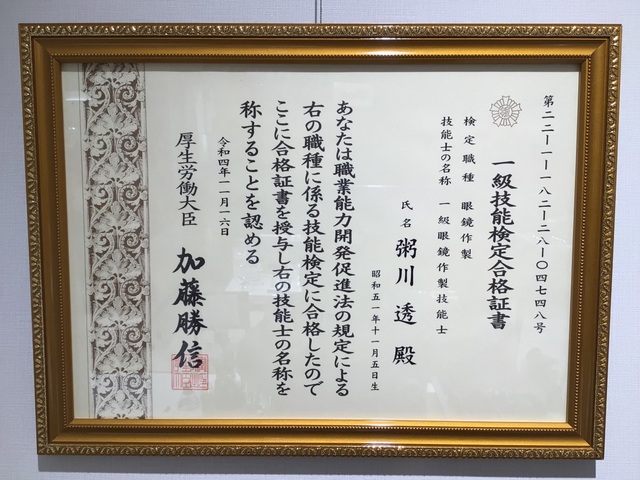 第二二ー一ー一八二ー二八ー〇四七四八号
一級技能検定合格証書
検定職種 眼鏡作製
技能士の名称 一級眼鏡作製技能士
氏名 粥川透殿
昭和五一年十一月五日生
あなたは職業能力開発促進法の規定による
右の職種に係る技能検定に合格したので
ここに合格証書を授与し右の技能士の名称を
称することを認める
令和四年一一月一六日
厚生労働大臣 加藤勝信